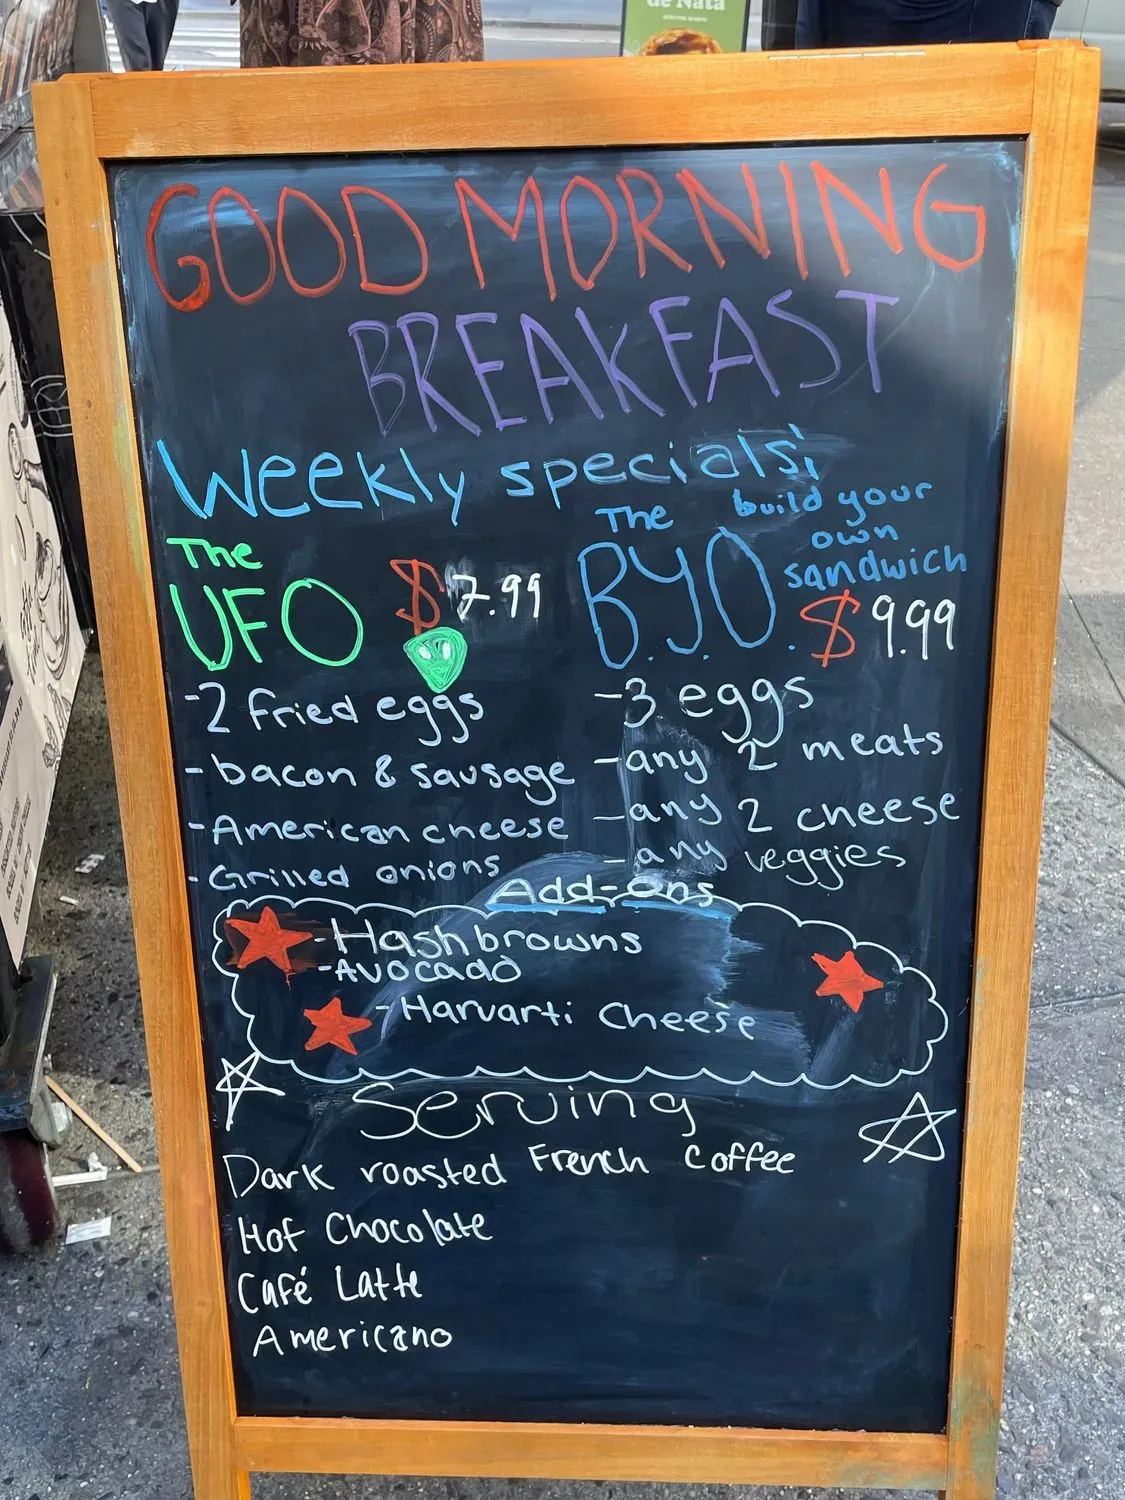 de Nata
GOOD MORNING
BREAKFAST
Weekly specials;
The
UFO $7.99
-2 fried eggs
-bacon & sausage
-American cheese
-Grilled onions
The build your
own
sandwich
B.Y.O. $9.99
-3 eggs
-any 2 meats
-any 2 cheese
-any veggies
Add-ons
-Hashbrowns
-Avocado
-Harvarti Cheese
Serving
Dark roasted French Coffee
Hot Chocolate
Café Latte
Americano